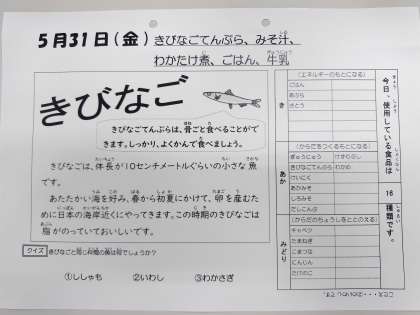 5月31日(金) きびなごてんぷら、みそ汁、
わかたけ煮、ごはん、牛乳
きびなご
きびなごてんぷらは、骨ごと食べることがで
きます。しっかり、よくかんで食べましょう。
きびなごは、体長が10センチメートルぐらいの小さな魚
です。
あたたかい海を好み、春から初夏にかけて、卵を産むた
めに日本の海岸近くにやってきます。この時期のきびなごは
脂がのっていておいしいです。
クイズ きびなごと同じ仲間の魚は何でしょうか?
①ししゃも ②いわし ③わかさぎ
(エネルギーのもとになる)
き
ごはん
あぶら
さとう
(からだをつくるもとになる)
あか
ぎゅうにゅう けずりぶし
きびなごてんぷら わかめ
だいこく
あかみそ
しろみそ
だしこんぶ
(からだのちょうしをととのえる)
みどり
キャベツ
たまねぎ
こまつな
にんじん
たけのこ
今日、使用している食品は
16
種類です。
こたえ・・・②のいわし です。